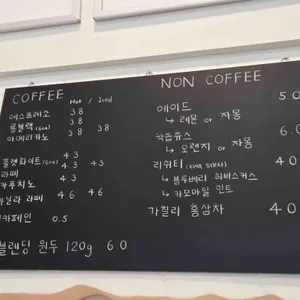 COFFEE
Hot / Iced
에스프레소 3.8
롱블랙 (Hot) 3.8
아메리카노 3.8 3.8
플랫화이트 (Hot) 4.3
라떼 4.3 4.3
카푸치노 4.3
바닐라 라떼 4.6 4.6
디카페인 0.5
블렌딩 원두 120g 6.0
NON COFFEE
에이드 5.0
↳ 레몬 or 자몽
착즙쥬스 6.0
↳ 오렌지 or 자몽
리쉬티
↳ 블루베리 히비스커스
↳ 카모마일 민트
가칠리 홍삼차 4.0